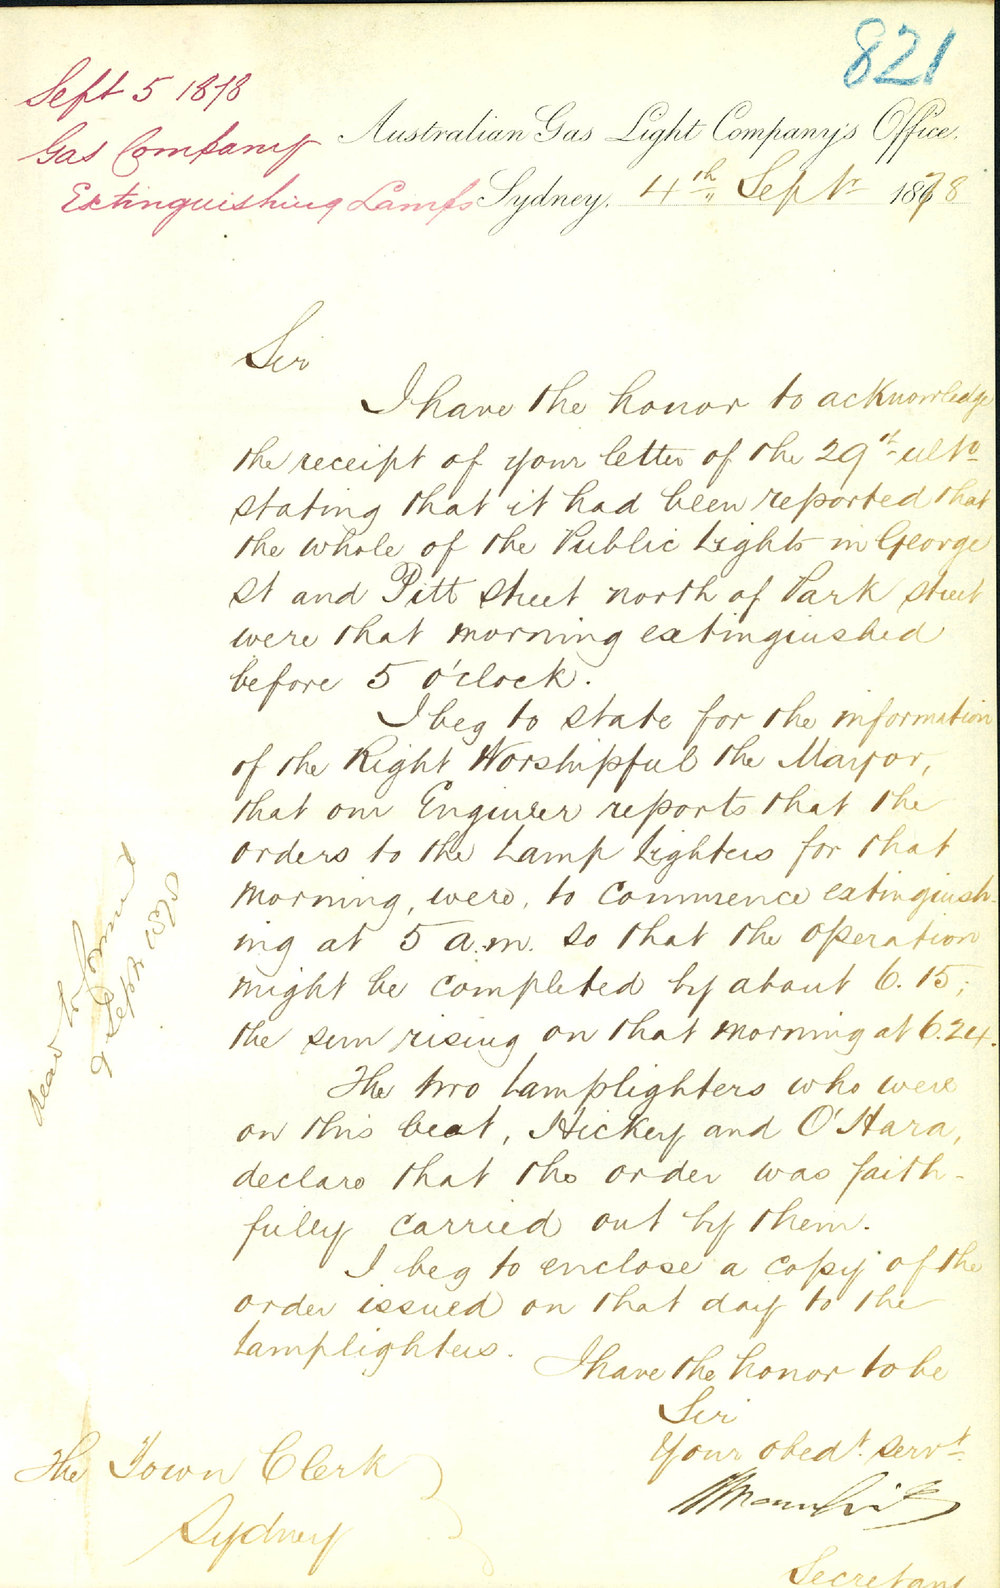 821
Sept 5 1878
Gas Company
Extinguishing Lamps
Australian Gas Light Company's Office.
Sydney. 4th Septr 1878
Sir
I have the honor to acknowledge
the receipt of your letter of the 29th ulto
stating that it had been reported that
the whole of the Public Lights in George
St and Pitt street north of Park street
were that morning extinguished
before 5 o'clock.
I beg to state for the information
of the Right Worshipful the Mayor,
that our Engineer reports that the
orders to the Lamp Lighters for that
morning, were, to commence extinguish-
ing at 5 a.m. so that the operation
might be completed by about 6.15;
the sun rising on that morning at 6.24.
The two Lamplighters who were
on this beat, Hickey and O'Hara,
declare that the order was faith-
fully carried out by them.
I beg to enclose a copy of the
order issued on that day to the
Lamplighters.
I have the honor to be
Sir
Your obedt. servt.
Secretary
The Town Clerk
Sydney
Read to Council
9 Septr 1878